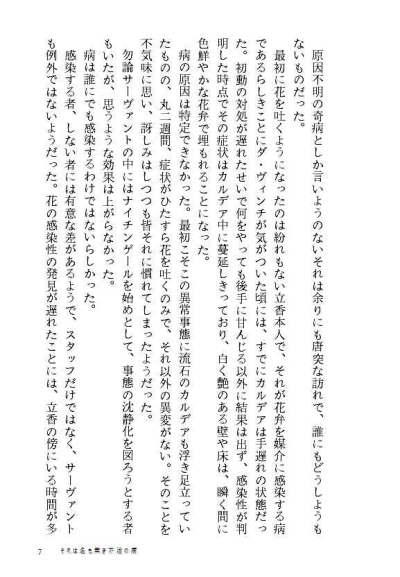 原因不明の奇病としか言いようのないそれは余りにも唐突な訪れで、誰にもどうしようも
ないものだった。
最初に花を吐くようになったのは紛れもない立香本人で、それが花弁を媒介に感染する病
であるらしきことにダ・ヴィンチが気がついた頃には、すでにカルデアは手遅れの状態だっ
た。初動の対処が遅れたせいで何をやっても後手に甘んじる以外に結果は出ず、感染性が判
明した時点でその症状はカルデア中に蔓延しきっており、白く艶のある壁や床は、瞬く間に
色鮮やかな花弁で埋もれることになった。
病の原因は特定できなかった。最初こそこの異常事態に流石のカルデアも浮き足立ってい
たものの、丸二週間、症状がひたすら花を吐くのみで、それ以外の異変がない。そのことを
不気味に思い、訝しみはしつつも皆それに慣れてしまったようだった。
勿論サーヴァントの中にはナイチンゲールを始めとして、事態の沈静化を図ろうとする者
もいたが、思うような効果は上がらなかった。
病は誰にでも感染するわけではないらしかった。
感染する者、しない者には有意な差があるようで、スタッフだけではなく、サーヴァント
も例外ではないようだった。花の感染性の発見が遅れたことには、立香の傍にいる時間が多
7 それは名も無き不治の病